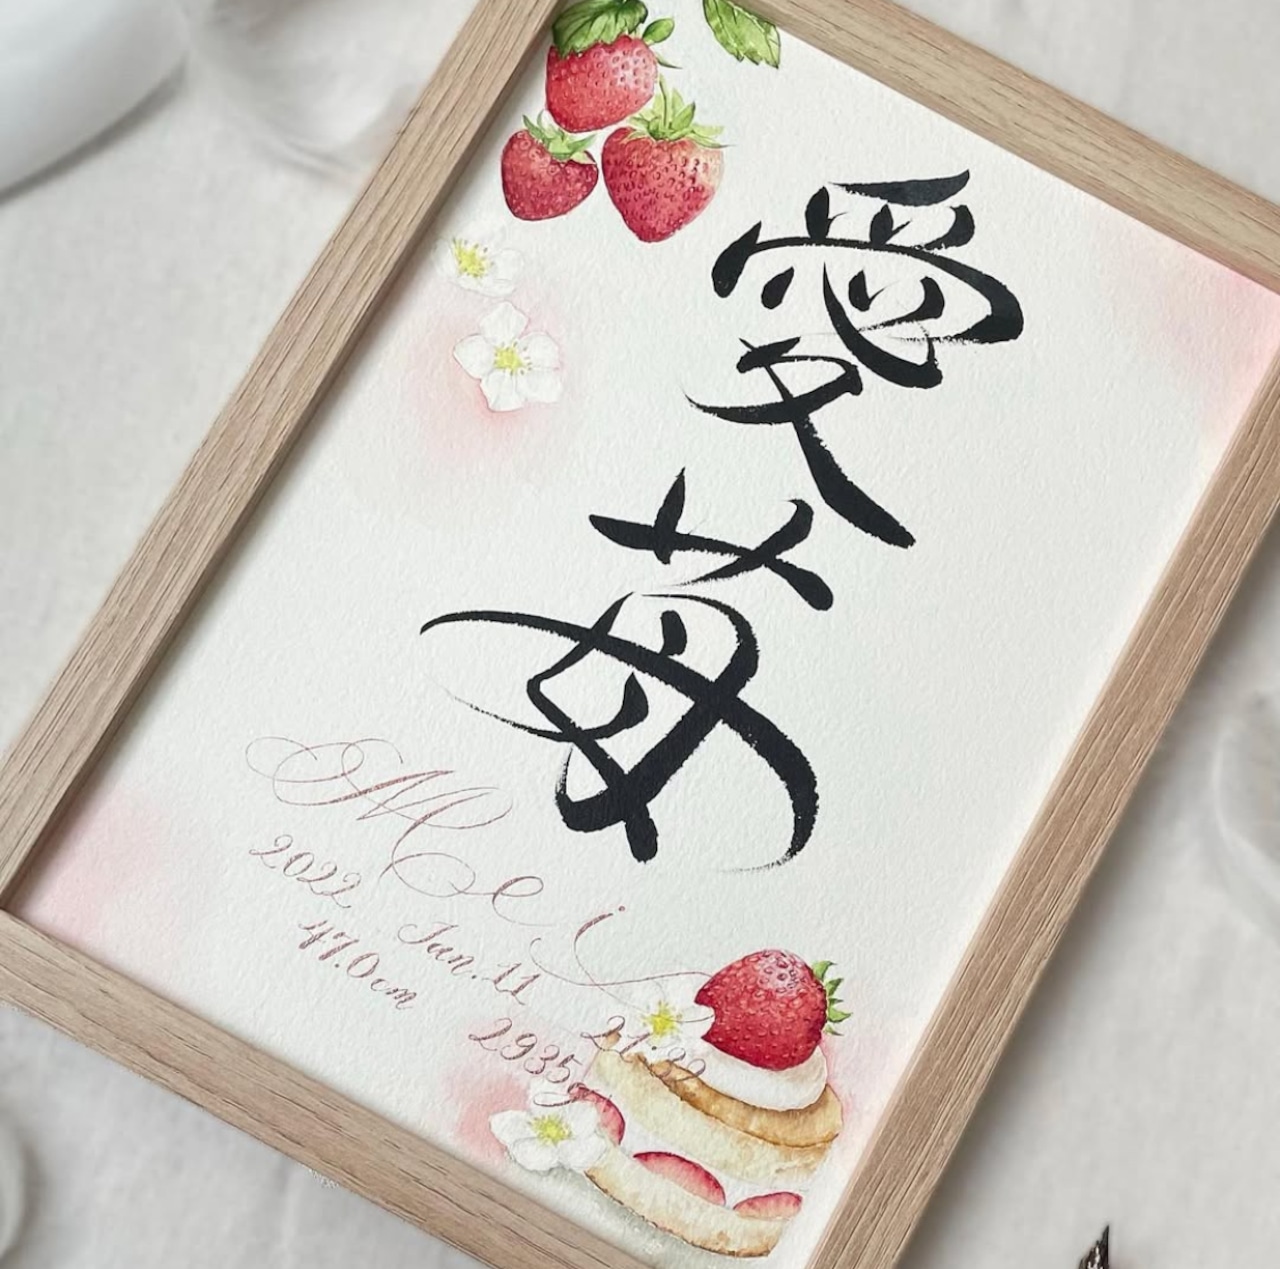 愛苺
Mei
2022 Jan. 11 21:32
47.0cm 2935g